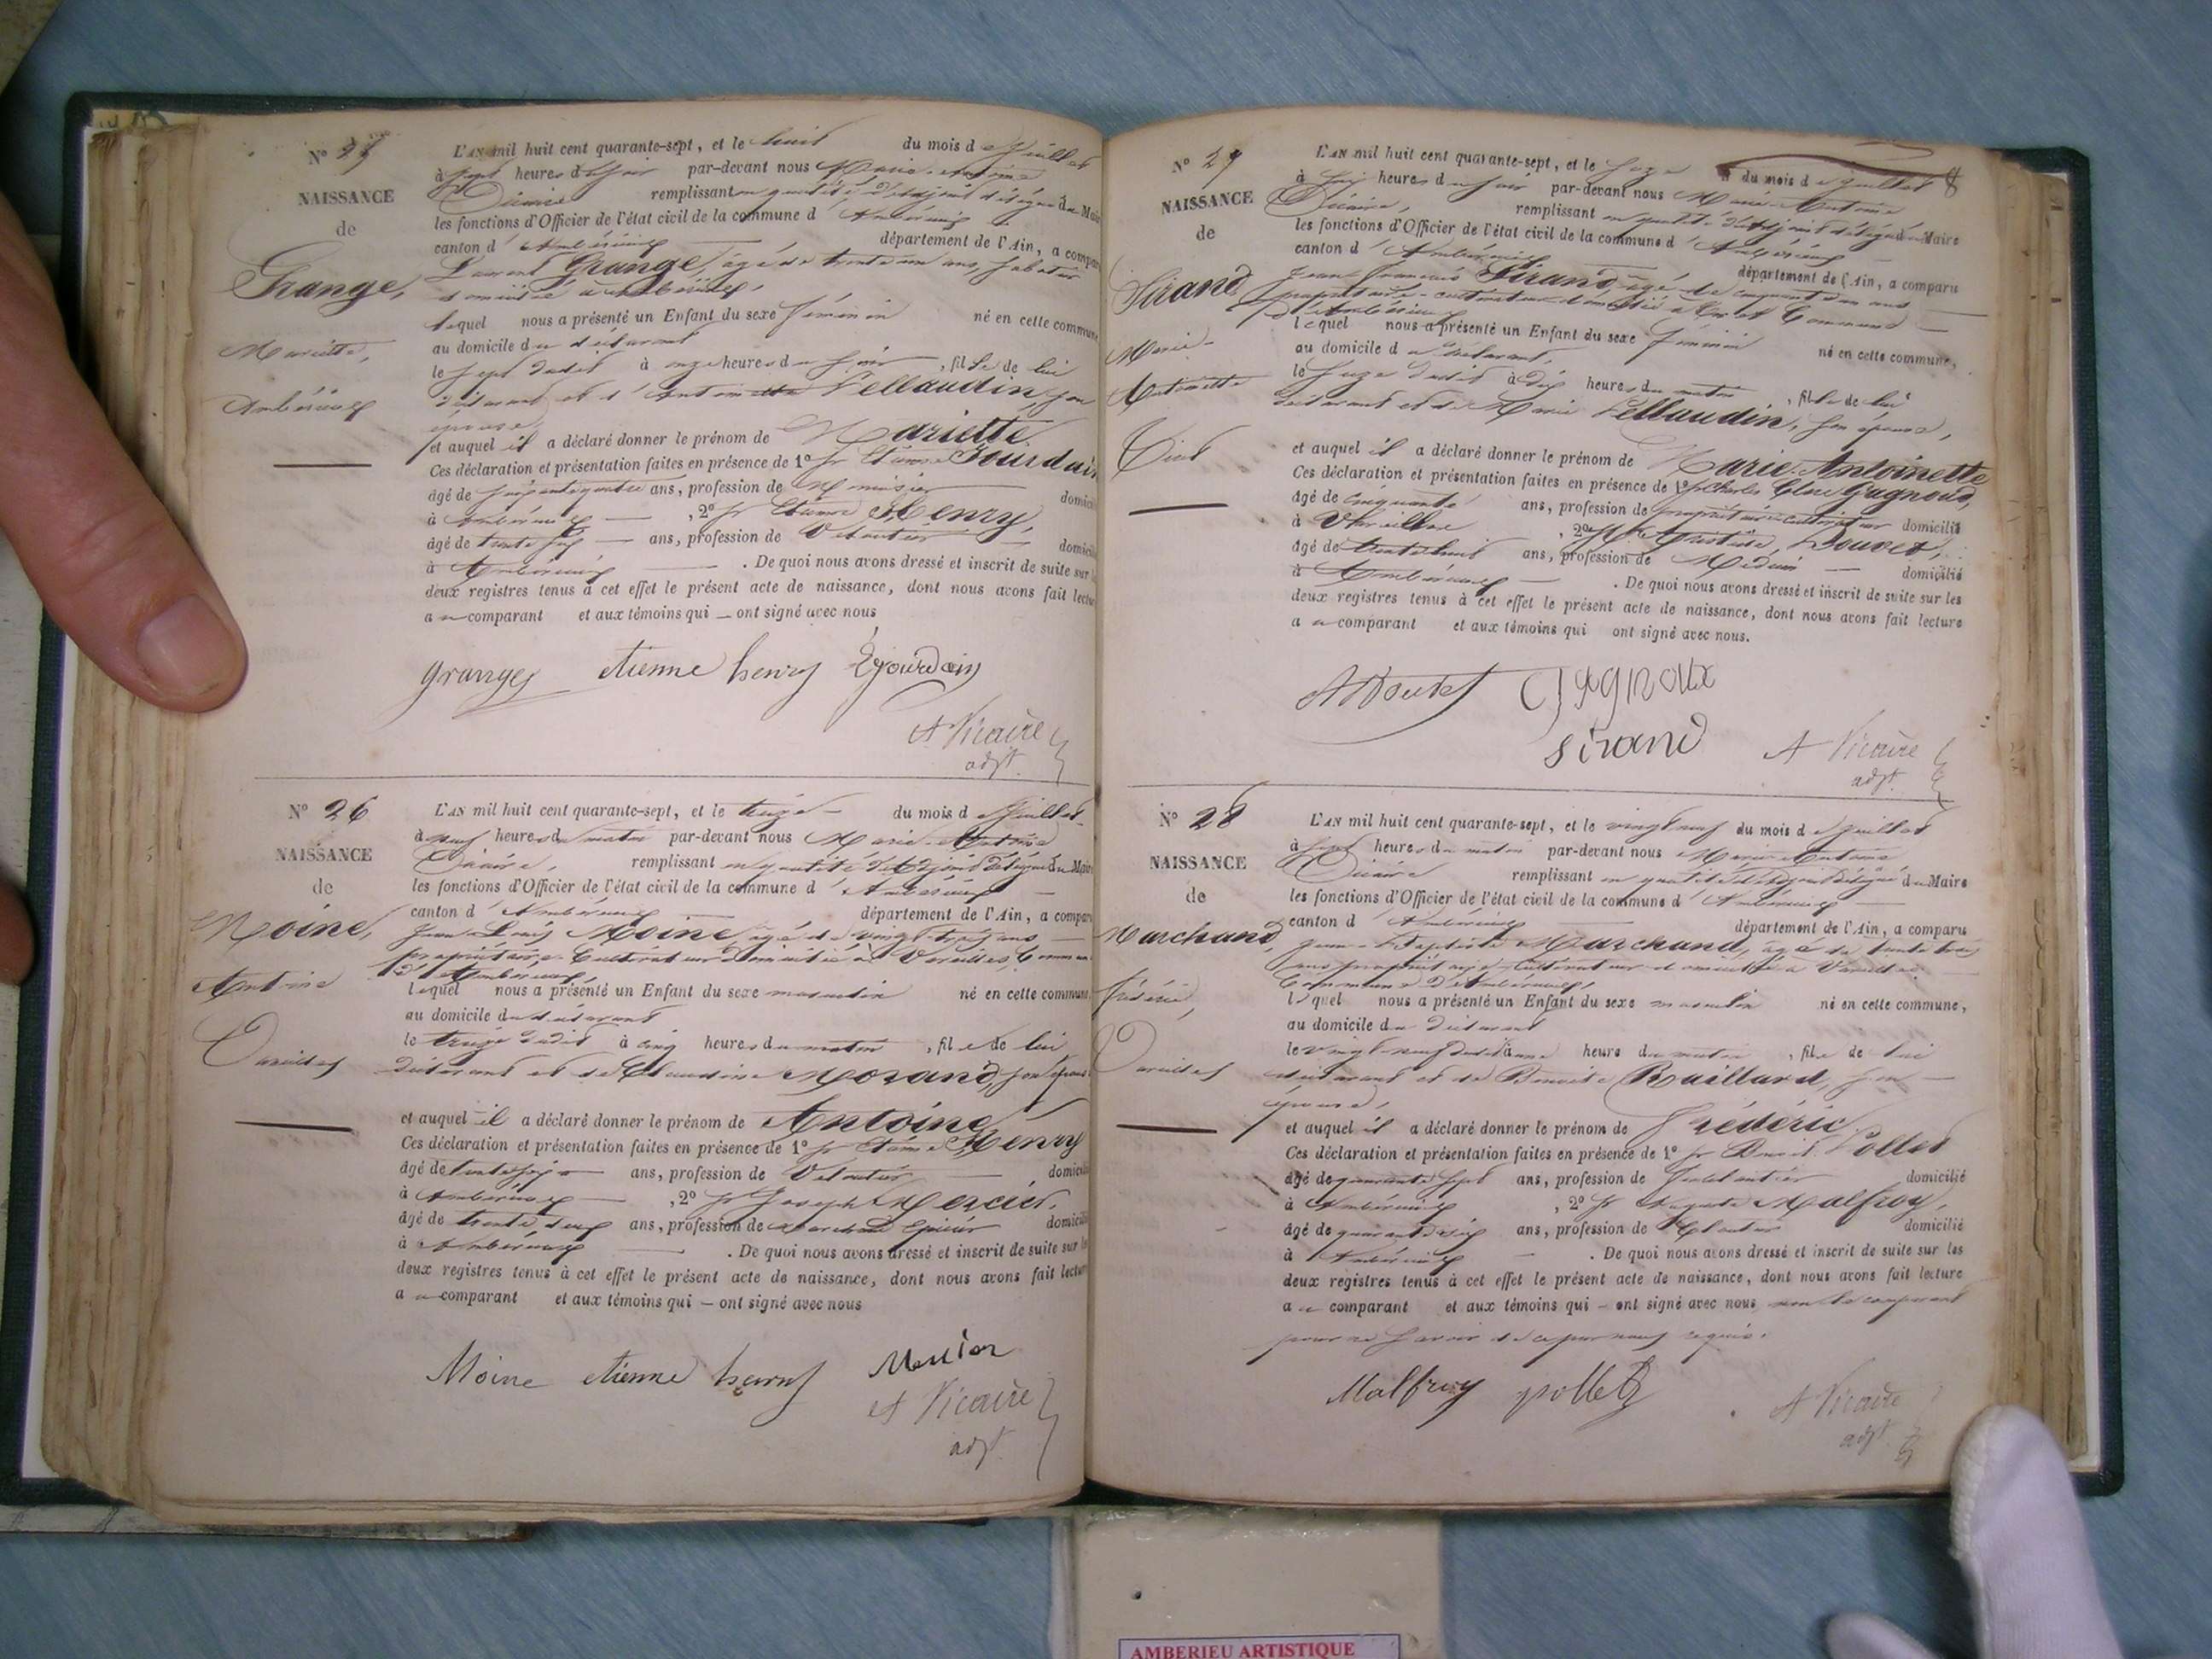 N° 25
NAISSANCE
de
Grange,
Mariette,
Ambérieux
L'AN mil huit cent quarante-sept, et le huit du mois de Juillet
à sept heures du soir par-devant nous Marie-Antoine
Vicaire remplissant en qualité d'adjoint délégué du Maire
les fonctions d'Officier de l'état civil de la commune d'Ambérieux
canton d'Ambérieux département de l'Ain, a comparu
Laurent Grange, âgé de trente un ans, sabotier
domicilié à Ambérieux,
lequel nous a présenté un Enfant du sexe féminin né en cette commune
au domicile du déclarant
le sept dudit à onze heures du soir, fille de lui
déclarant et d'Antoinette Pellaudin son
épouse,
et auquel il a déclaré donner le prénom de Mariette
Ces déclaration et présentation faites en présence de 1° Sr Etienne Jourdain
âgé de soixante quatre ans, profession de Menuisier domici
à Ambérieux, 2° Sr Etienne Henry,
âgé de trente six ans, profession de Veloutier domici
à Ambérieux. De quoi nous avons dressé et inscrit de suite sur
deux registres tenus à cet effet le présent acte de naissance, dont nous avons fait lecture
au comparant et aux témoins qui ont signé avec nous
granges etienne henry Ejourdain
A Vicaire
adjt.
N° 26
NAISSANCE
de
Moine,
Antoine
Vareilles
L'AN mil huit cent quarante-sept, et le treize du mois de Juillet
à neuf heures du matin par-devant nous Marie-Antoine
Vicaire, remplissant en qualité d'adjoint délégué du Maire
les fonctions d'Officier de l'état civil de la commune d'Ambérieux
canton d'Ambérieux département de l'Ain, a comparu
Jean-Louis Moine, âgé de vingt-trois ans
propriétaire-Cultivateur domicilié à Vareilles, Commune
d'Ambérieux,
lequel nous a présenté un Enfant du sexe masculin né en cette commune
au domicile du déclarant
le treize dudit à cinq heures du matin, fils de lui
déclarant et de Claudine Morand, son épouse
et auquel il a déclaré donner le prénom de Antoine
Ces déclaration et présentation faites en présence de 1° Sr Etienne Henry
âgé de trente six ans, profession de Veloutier domici
à Ambérieux, 2° Sr Joseph Mercier,
âgé de trente deux ans, profession de marchand Epicier domici
à Ambérieux. De quoi nous avons dressé et inscrit de suite sur
deux registres tenus à cet effet le présent acte de naissance, dont nous avons fait lecture
au comparant et aux témoins qui ont signé avec nous
Moine etienne henry Mercier
A Vicaire
adjt.
8
N° 27
NAISSANCE
de
Sirand
Marie-
Antoinette
Tiret
L'AN mil huit cent quarante-sept, et le seize du mois de Juillet
à six heures du soir par-devant nous Marie-Antoine
Vicaire, remplissant en qualité d'adjoint délégué du Maire
les fonctions d'Officier de l'état civil de la commune d'Ambérieux
canton d'Ambérieux département de l'Ain, a comparu
Jean-François Sirand, âgé de cinquante un ans
propriétaire-cultivateur domicilié à Tiret Commune
d'Ambérieux
lequel nous a présenté un Enfant du sexe féminin né en cette commune,
au domicile du déclarant,
le seize dudit à dix heures du matin, fille de lui
déclarant et de Marie Pellaudin, son épouse,
et auquel il a déclaré donner le prénom de Marie-Antoinette
Ces déclaration et présentation faites en présence de 1° Sr Charles Gagnoud,
âgé de cinquante ans, profession de propriétaire cultivateur domicilié
à Vareilles, 2° Sr Aristide Bouvet,
âgé de trente huit ans, profession de Médecin domicilié
à Ambérieux. De quoi nous avons dressé et inscrit de suite sur les
deux registres tenus à cet effet le présent acte de naissance, dont nous avons fait lecture
au comparant et aux témoins qui ont signé avec nous.
A Bouvet C gagnoux
Sirand A Vicaire
adjt.
N° 28
NAISSANCE
de
Marchand,
Frédéric,
Vareilles
L'AN mil huit cent quarante-sept, et le vingt neuf du mois de Juillet
à sept heures du matin par-devant nous Marie-Antoine
Vicaire remplissant en qualité d'adjoint délégué du Maire
les fonctions d'Officier de l'état civil de la commune d'Ambérieux
canton d'Ambérieux département de l'Ain, a comparu
Jean-Baptiste Marchand, âgé de trente trois
ans propriétaire-Cultivateur domicilié à Vareilles
Commune d'Ambérieux,
lequel nous a présenté un Enfant du sexe masculin né en cette commune,
au domicile du déclarant
le vingt-neuf dudit à une heure du matin, fils de lui
déclarant et de Benoite Ruillard, son
épouse,
et auquel il a déclaré donner le prénom de Frédéric
Ces déclaration et présentation faites en présence de 1° Sr Benoit Pollet
âgé de quarante sept ans, profession de domicilié
à Ambérieux, 2° Sr Auguste Malfroy,
âgé de ans, profession de domicilié
à Ambérieux. De quoi nous avons dressé et inscrit de suite sur les
deux registres tenus à cet effet le présent acte de naissance, dont nous avons fait lecture
au comparant et aux témoins qui ont signé avec nous non le comparant
pour ne savoir de ce par nous requis.
Malfroy pollet A Vicaire
adjt
AMBERIEU ARTISTIQUE